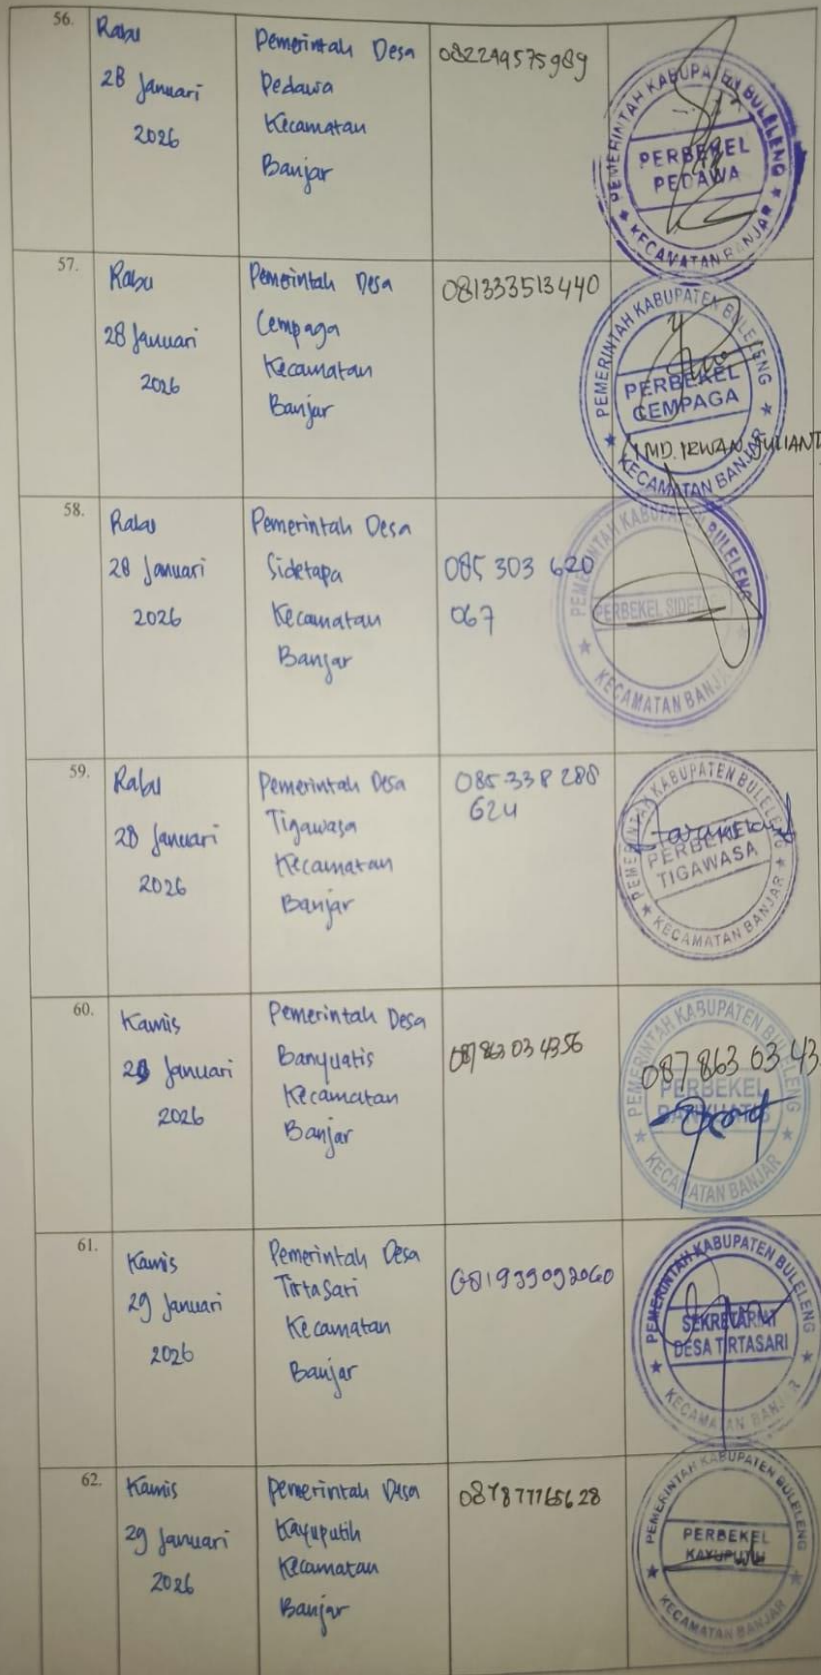 56.
Rabu
28 Januari
2026
Pemerintah Desa
Pedawa
Kecamatan
Banjar
082299575989
PEMERINTAH KABUPATEN BULELENG
PERBEKEL
PEDAWA
KECAMATAN BANJAR
57.
Rabu
28 Januari
2026
Pemerintah Desa
Cempaga
Kecamatan
Banjar
081333513440
PEMERINTAH KABUPATEN BULELENG
PERBEKEL
CEMPAGA
KECAMATAN BANJAR
58.
Rabu
28 Januari
2026
Pemerintah Desa
Sidetapa
Kecamatan
Banjar
085 303 620
067
PEMERINTAH KABUPATEN BULELENG
PERBEKEL
KECAMATAN BANJAR
59.
Rabu
28 Januari
2026
Pemerintah Desa
Tigawasa
Kecamatan
Banjar
085 338 288
624
PEMERINTAH KABUPATEN BULELENG
PERBEKEL
TIGAWASA
KECAMATAN BANJAR
60.
Kamis
29 Januari
2026
Pemerintah Desa
Banyuatis
Kecamatan
Banjar
087863 03 4356
087 863 03 43
PEMERINTAH KABUPATEN BULELENG
PERBEKEL
BANYUATIS
KECAMATAN BANJAR
61.
Kamis
29 Januari
2026
Pemerintah Desa
Tirtasari
Kecamatan
Banjar
PEMERINTAH KABUPATEN BULELENG
SEKRETARIAT
DESA TIRTASARI
KECAMATAN BANJAR
62.
Kamis
29 Januari
2026
Pemerintah Desa
Kayuputih
Kecamatan
Banjar
PEMERINTAH KABUPATEN BULELENG
PERBEKEL
KAYUPUTIH
KECAMATAN BANJAR